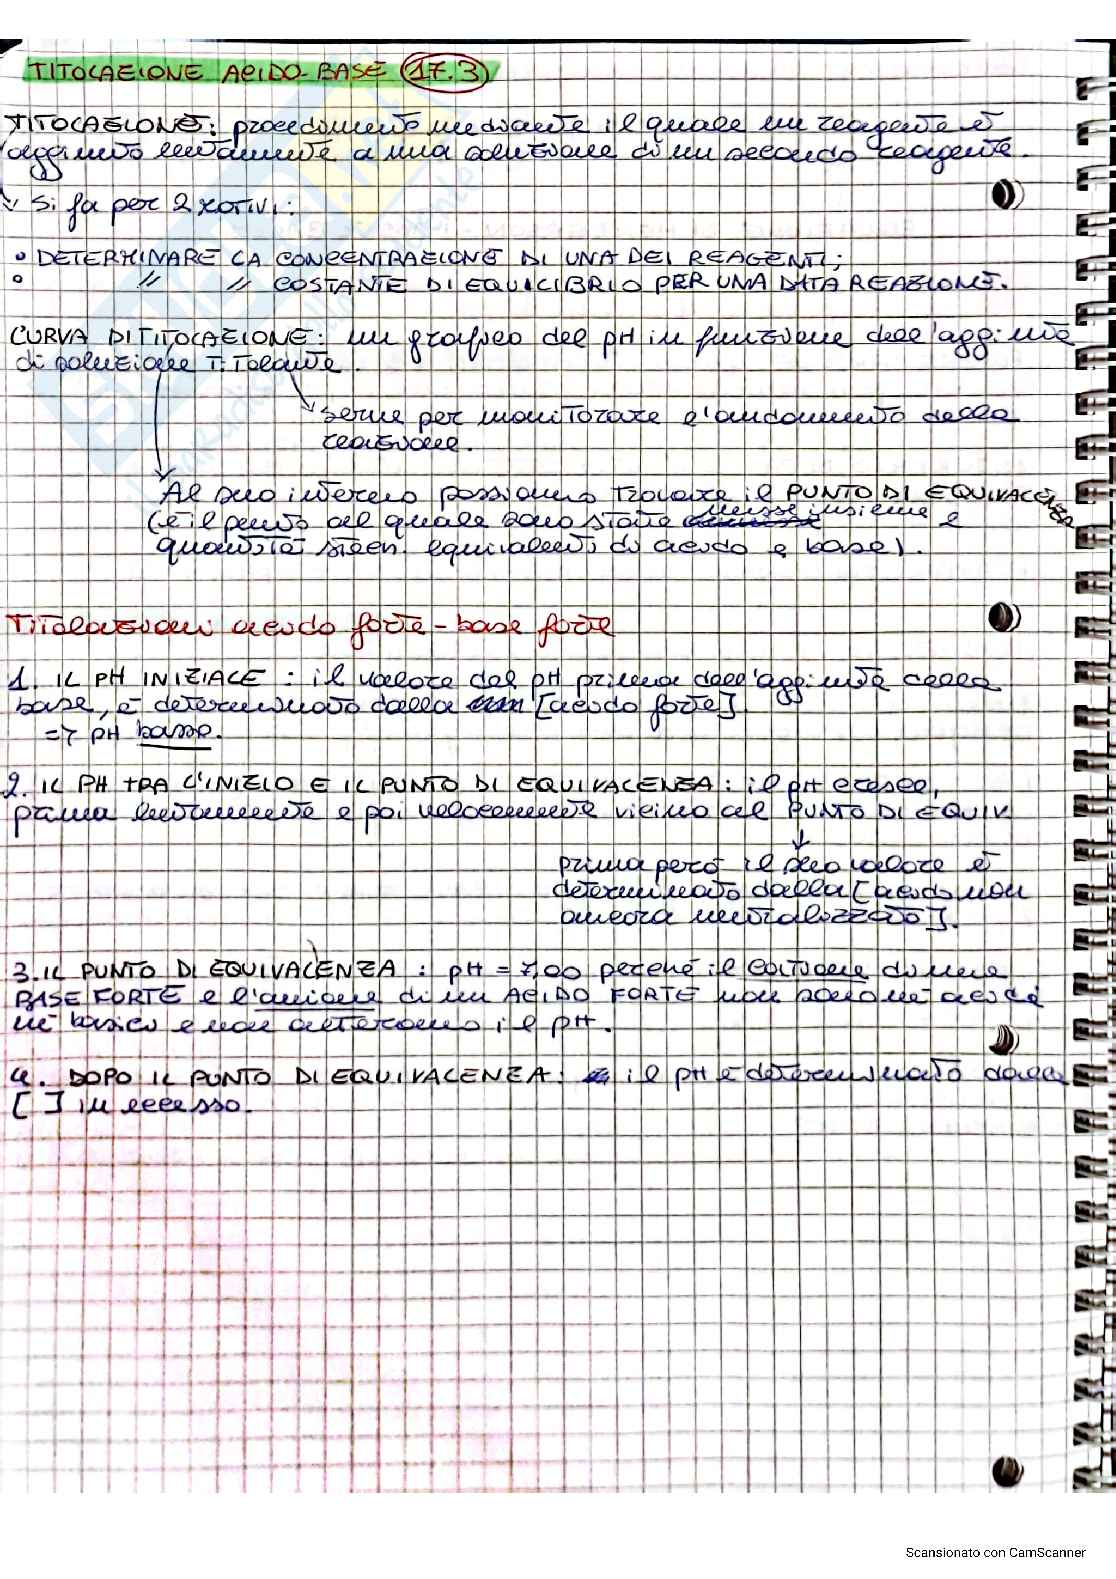 TITOLAZIONE ACIDO-BASE (17.3)
TITOLAZIONE: procedimento mediante il quale un reagente è
aggiunto lentamente a una soluzione di un secondo reagente.
Si fa per 2 motivi:
• DETERMINARE LA CONCENTRAZIONE DI UNA DEI REAGENTI;
• // // COSTANTE DI EQUILIBRIO PER UNA DATA REAZIONE.
CURVA DI TITOLAZIONE: un grafico del pH in funzione dell'aggiunta
di soluzione TiTolante.
serve per monitorare l'andamento della
reazione.
Al suo interno possiamo trovare il PUNTO DI EQUIVALENZA
(è il punto al quale sono state messe insieme
quantità stech. equivalenti di acido e base).
Titolazioni acido forte - base forte
1. IL PH INIZIALE : il valore del pH prima dell'aggiunta della
base, è determinato dalla [acido forte]
=> PH basso.
2. IL PH TRA L'INIZIO E IL PUNTO DI EQUIVALENZA: il pH cresce,
prima lentamente e poi velocemente vicino al PUNTO DI EQUIV.
prima però il suo valore è
determinato dalla [acido non
ancora neutralizzato].
3. IL PUNTO DI EQUIVALENZA : pH = 7,00 perché il catione di una
BASE FORTE e l'anione di un ACIDO FORTE non sono né acidi
né basici e non alterano il pH.
4. DOPO IL PUNTO DI EQUIVALENZA: il pH è determinato dalla
[ ] in eccesso.
Scansionato con CamScanner